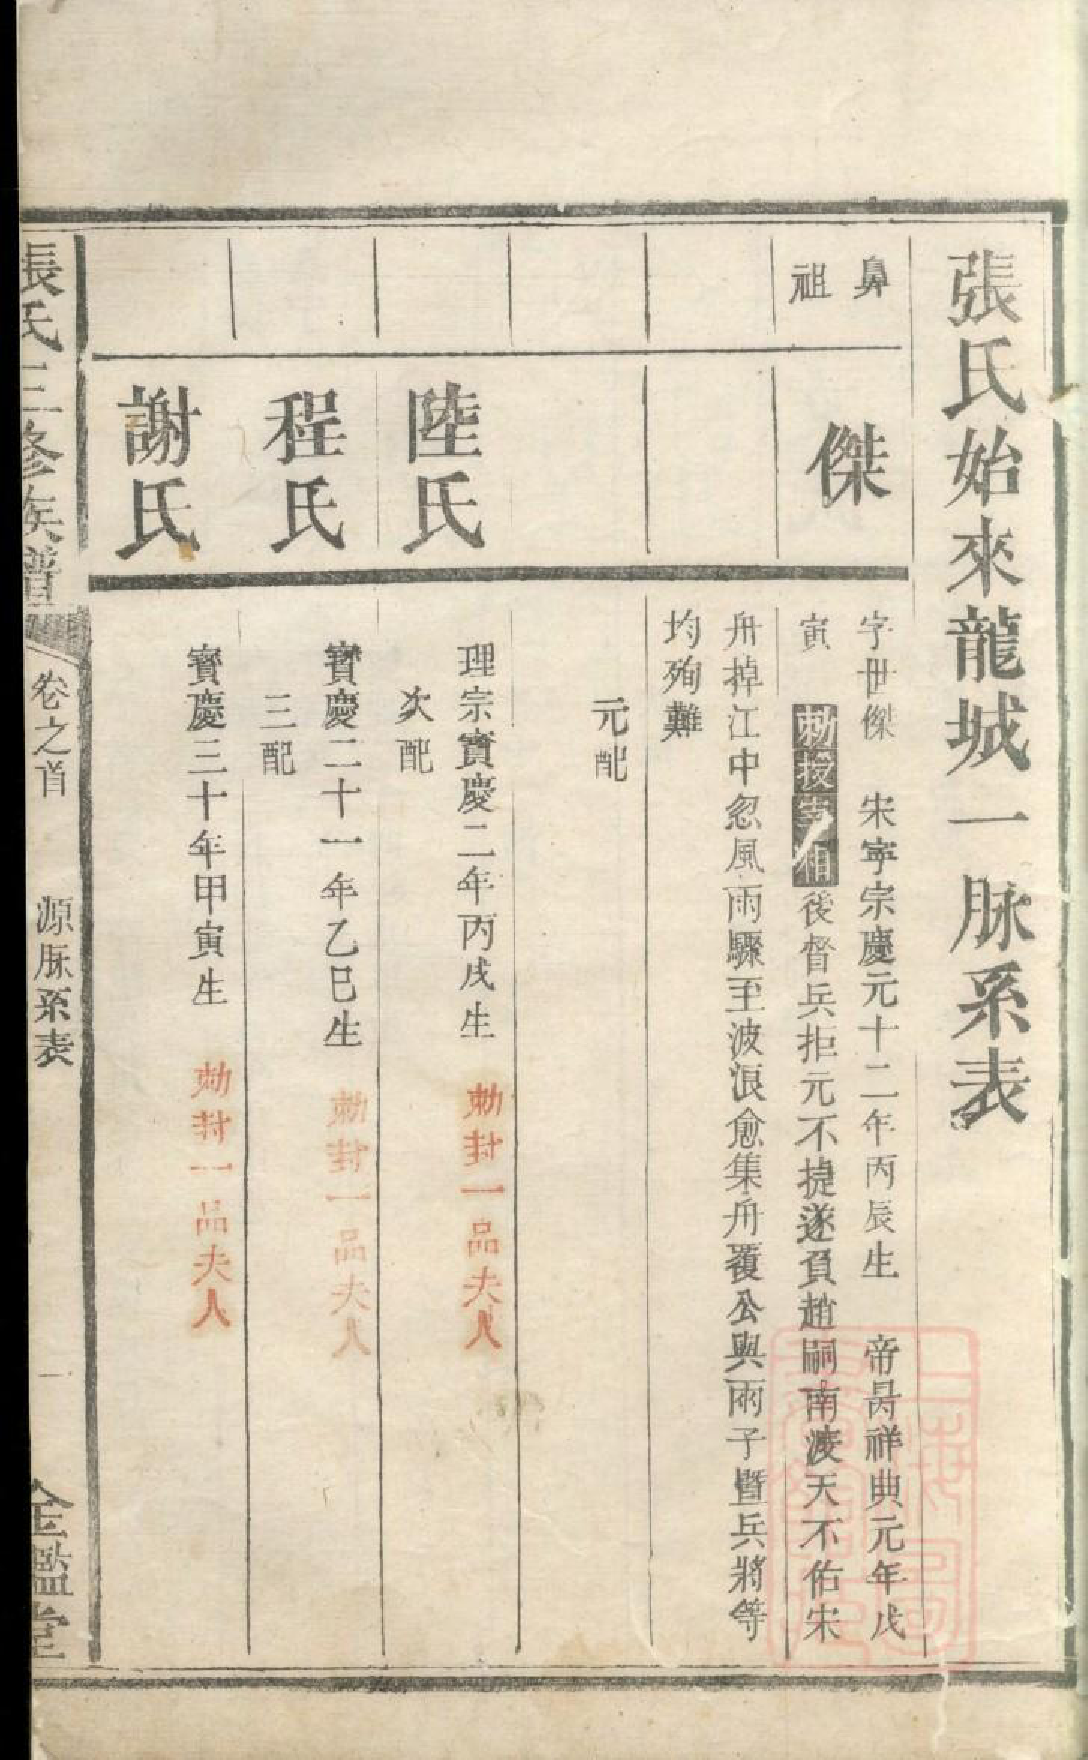 張氏始來龍城一脉系表
鼻祖
傑
字世傑 宋寧宗慶元十二年丙辰生 帝昺祥典元年戊
寅 勅授 伯後督兵拒元不捷遂負趙嗣南渡天不佑宋
舟掉江中忽風雨驟至波浪愈集舟覆公與兩子暨兵將等
均殉難
元配
陸氏
理宗寶慶二年丙戌生 勅封一品夫人
次配
程氏
寶慶二十一年乙巳生 勅封一品夫人
三配
謝氏
寶慶三十年甲寅生 勅封一品夫人
張氏三修族譜
卷之首 源脉系表 一
全鑑堂